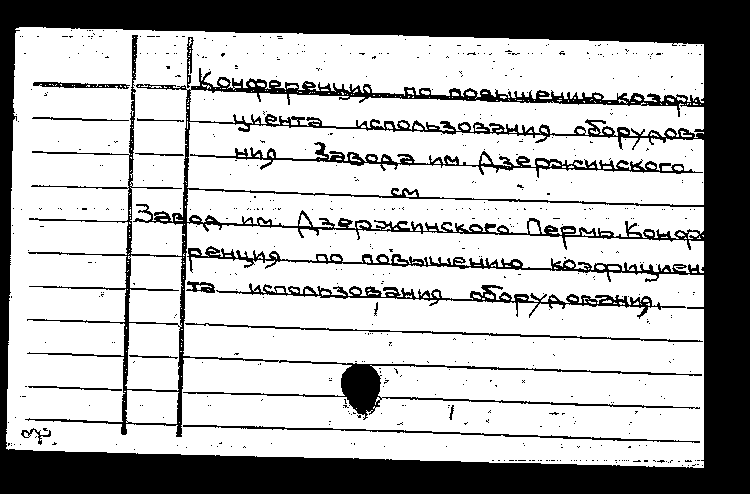 Конференция по повышению коэфи-
циента использования оборудова-
ния Завода им. Дзержинского.
см
Завод им. Дзержинского Пермь. Конфе-
ренция по повышению коэфициен-
та использования оборудования.